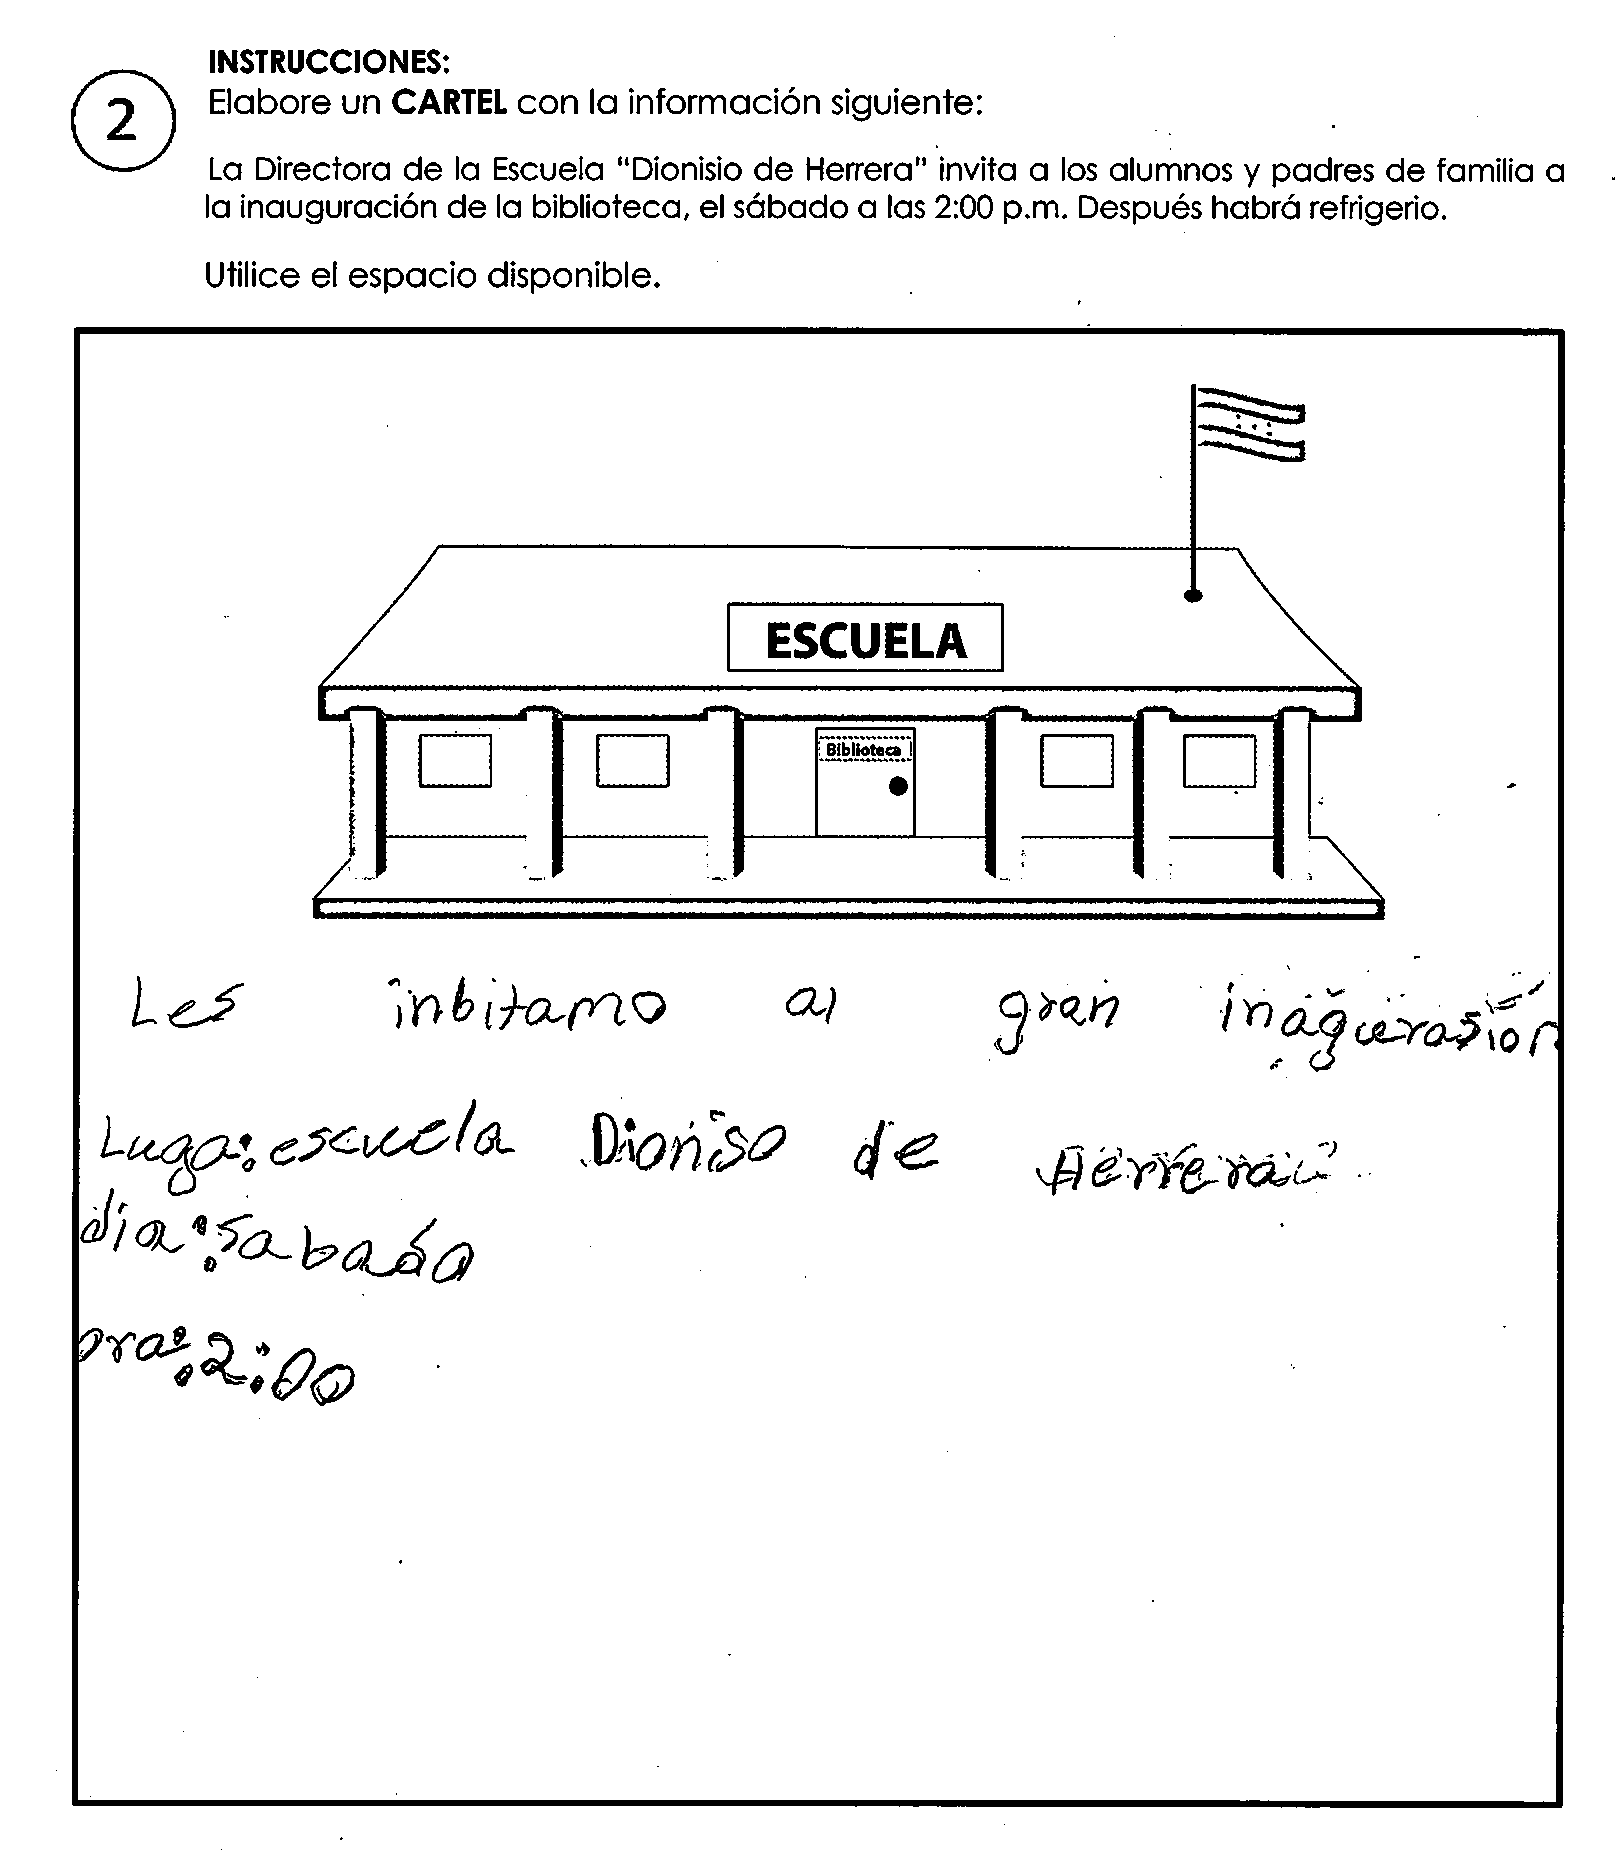 INSTRUCCIONES:
2
Elabore un CARTEL con la información siguiente:
La Directora de la Escuela "Dionisio de Herrera" invita a los alumnos y padres de familia a
la inauguración de la biblioteca, el sábado a las 2:00 p.m. Después habrá refrigerio.
Utilice el espacio disponible.
ESCUELA
Biblioteca
Les inbitamo al gran inaguerasión
Luga: escuela Dioniso de Herrera
día: sabado
ora: 2:00